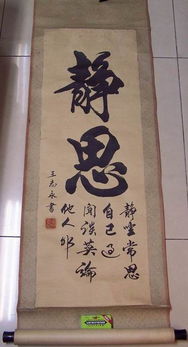 静思
静坐常思
自己过
闲谈莫论
他人非
王志永书